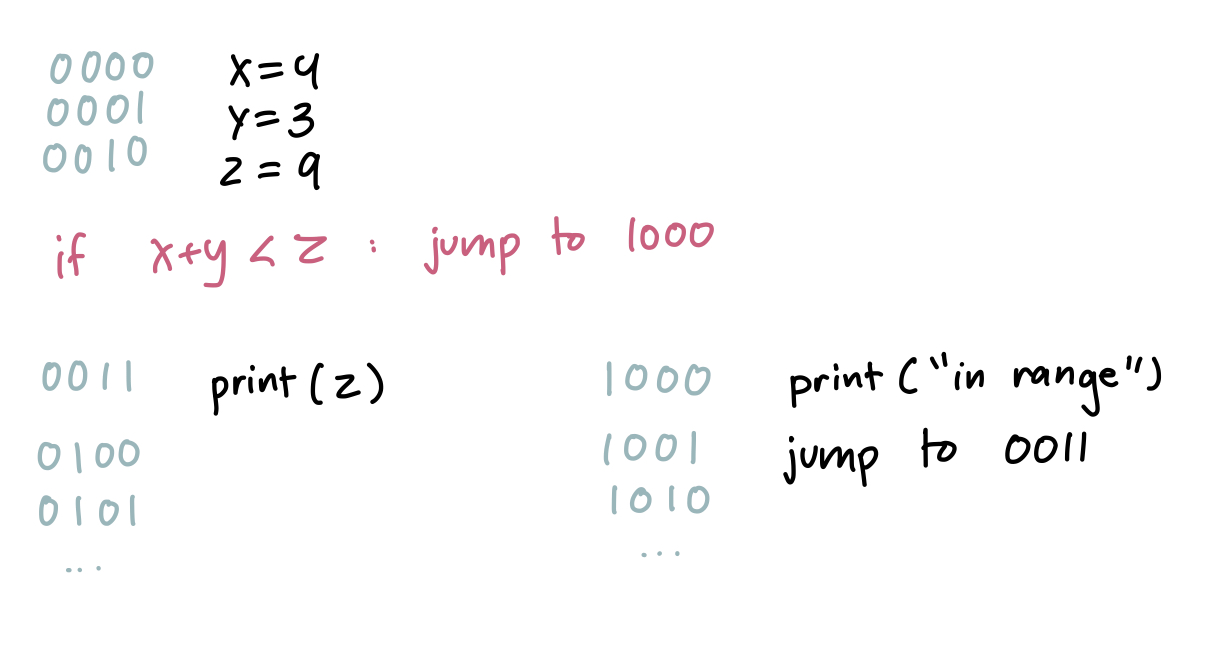 0000 x=4
0001 y=3
0010 z=9
if x+y < z : jump to 1000
0011 print(z)
0100
0101
...
1000 print("in range")
1001 jump to 0011
1010
...